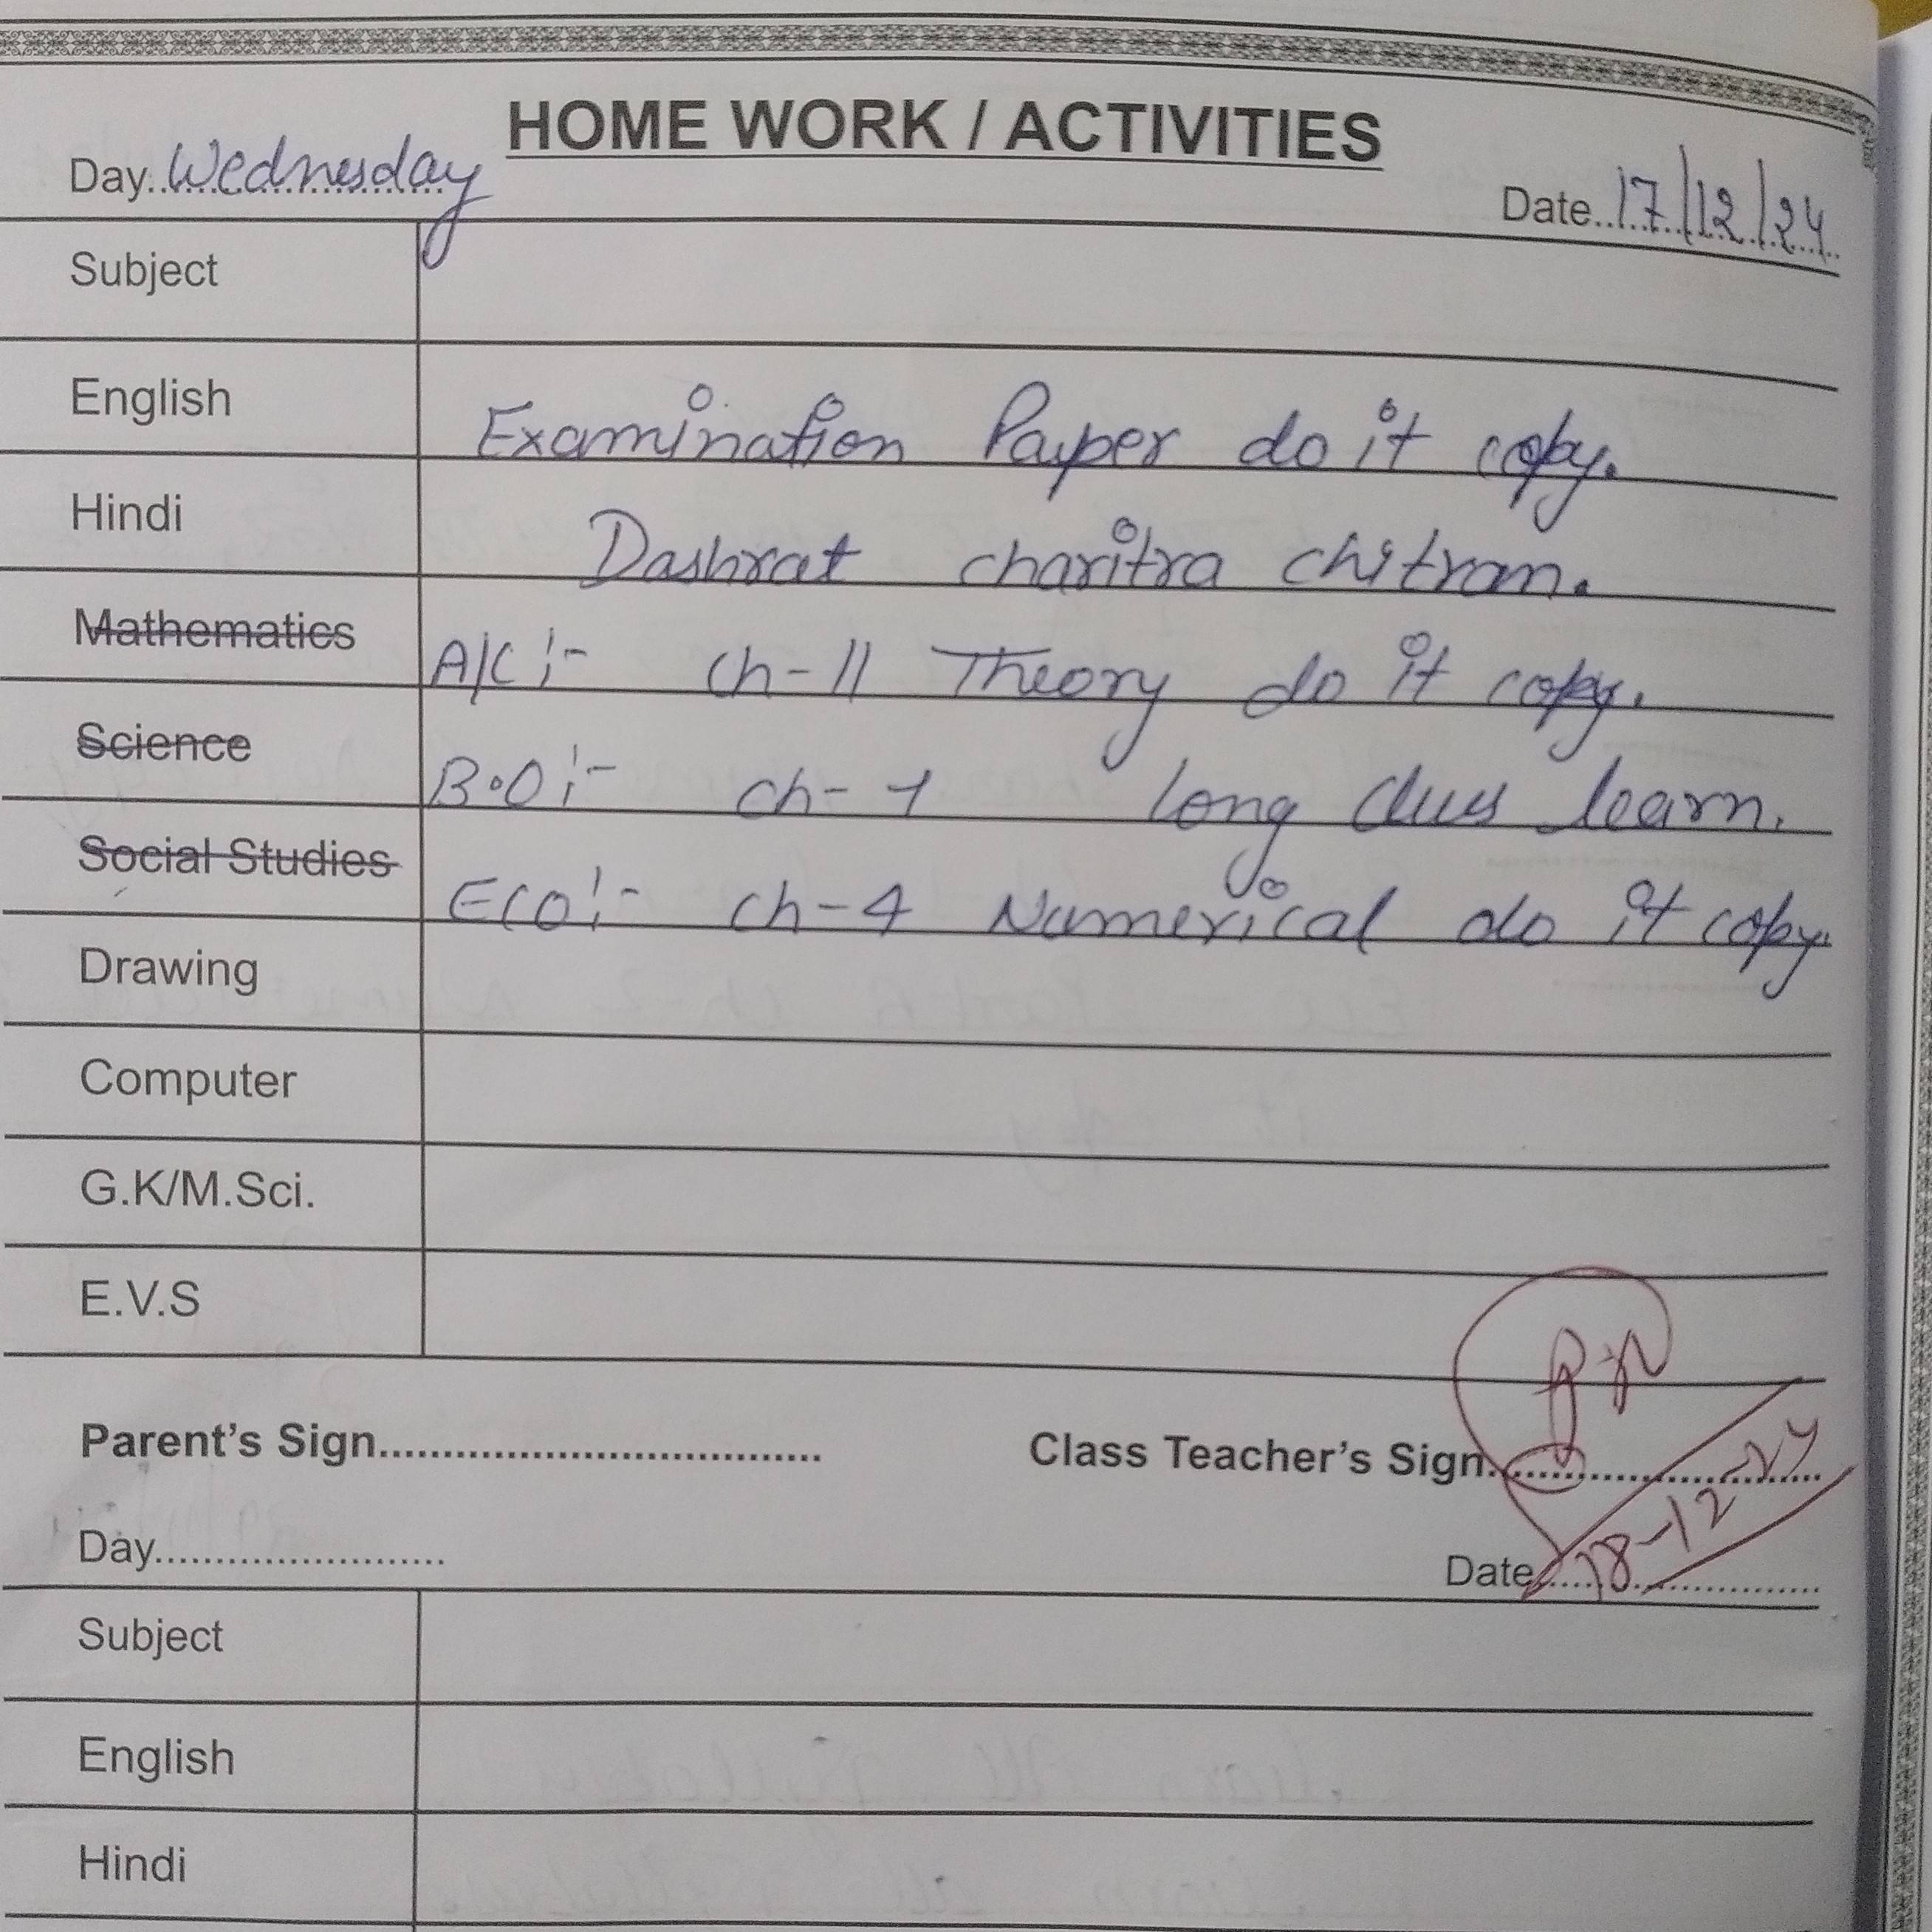 HOME WORK / ACTIVITIES
Day..Wednesday
Date..17/12/24
Subject
English Examination Paper do it copy.
Hindi Dashrat charitra chitran.
Mathematics A/C :- Ch-11 Theory do it copy.
Science B.O :- Ch-1 Long Clues learn.
Social Studies Eco :- Ch-4 Numerical do it copy.
Drawing
Computer
G.K/M.Sci.
E.V.S
Parent's Sign.................................. Class Teacher's Sign..........................
18-12-24
Day........................ Date........................
Subject
English
Hindi